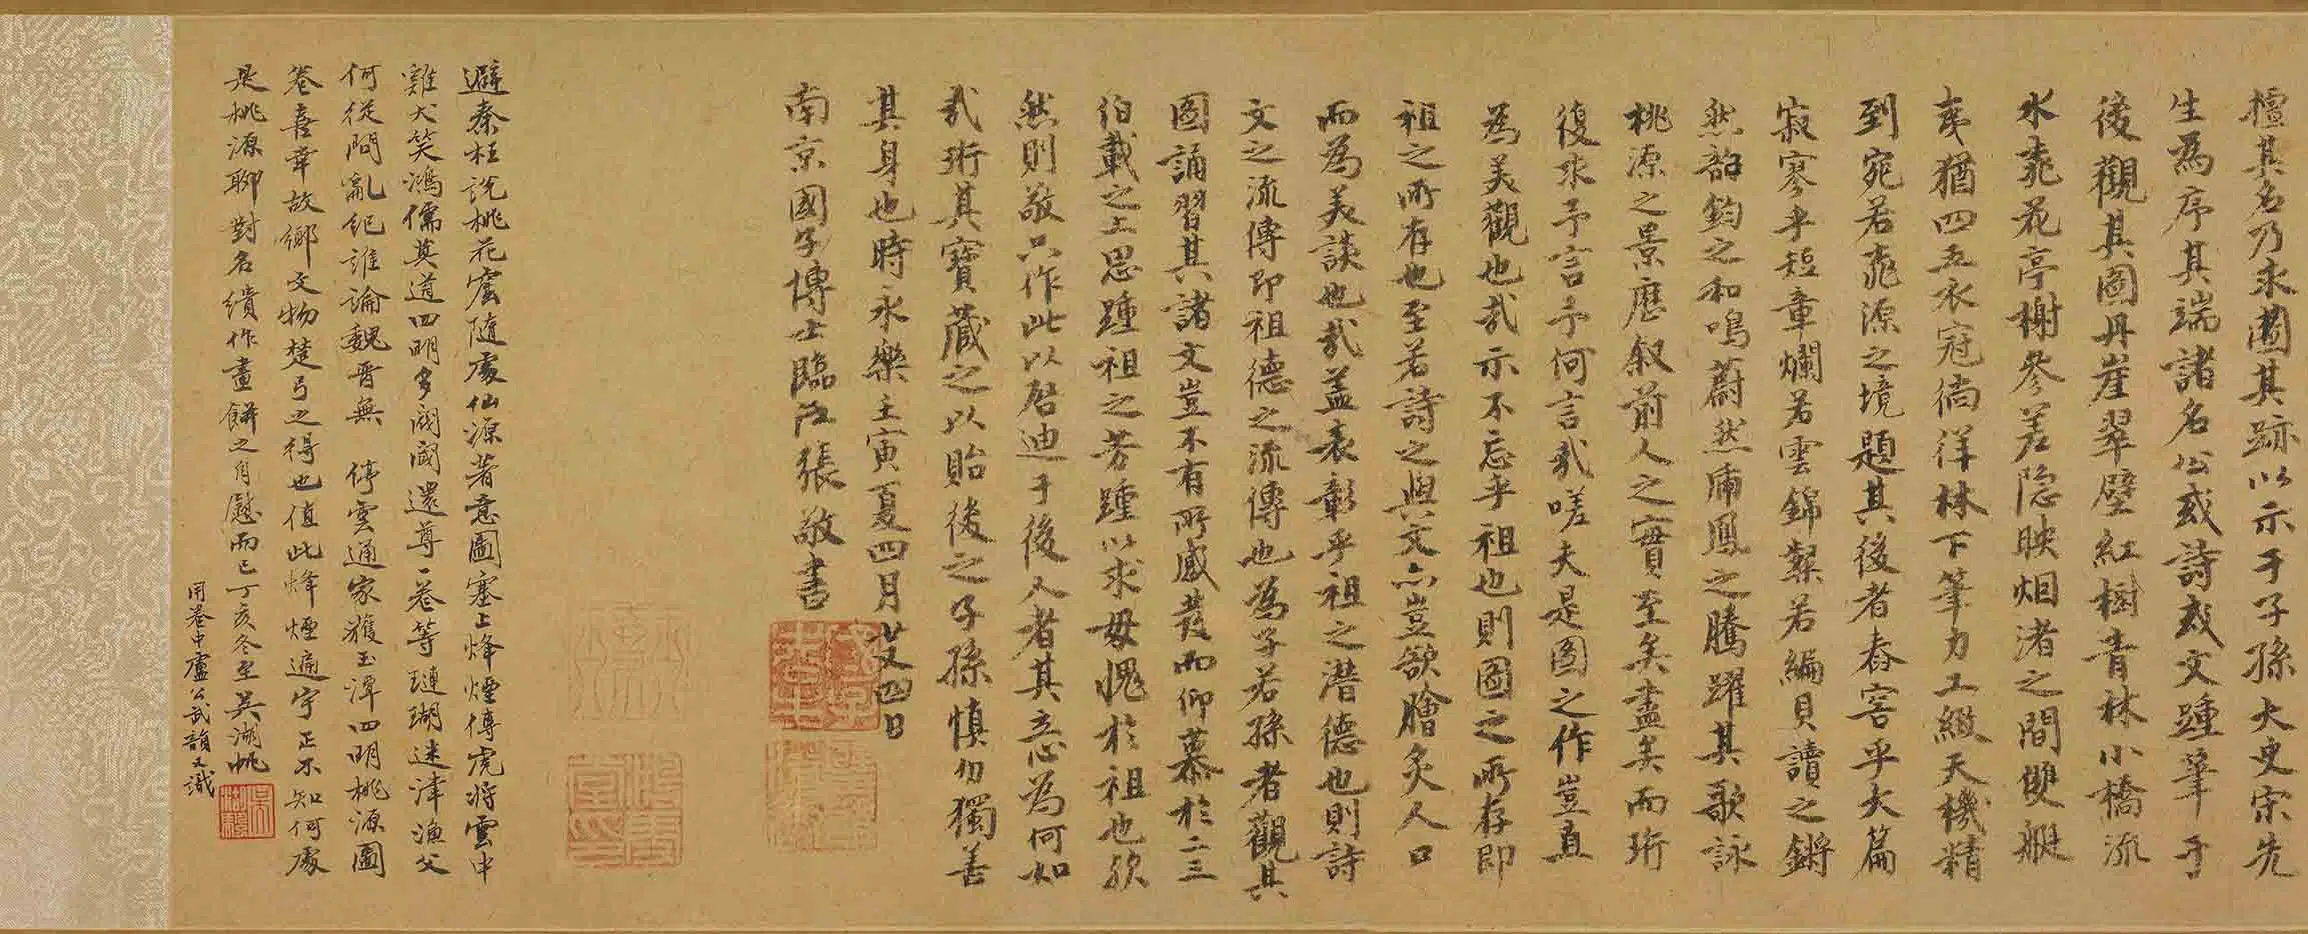 檀其名乃求圖其跡以示于子孫太史宋先
生為序其端諸名公或詩或文踵筆于
後觀其圖丹崖翠壁紅樹青林小橋流
水桃花亭榭參差隐映烟渚之間雙艇
猶四五衣冠徜徉林下筆力工緻天機精
到宛若桃源之境題其後者春容乎大篇
寂寥乎短章爛若雲錦粲若編貝讀之鏘
然韶鈞之和鳴蔚然鳳之騰躍其歌詠
桃源之景歷叙前人之實至矣盡矣而珩
復求予言予何言哉嗟夫是圖之作豈直
為美觀也哉示不忘乎祖也則圖之所存即
祖之所存也至若詩之與文亦豈欲膾炙人口
而為美談也哉蓋表彰乎祖之潛德也則詩
文之流傳即祖德之流傳也為子若孫者觀其
圖誦習其諸文豈不有所感發而仰慕於二三
伯載之上思踵祖之芳踵以求毋愧於祖也欤
然則敬只作此以啓迪于後人者其意為何如
哉珩其寶藏之以貽後之子孫慎勿獨善
其身也時永樂壬寅夏四月廿又四日
南京國子博士臨江張敬書
避秦枉説桃花塢隨處仙源著意圖塞上烽煙傳虎將雲中
雞犬笑鴻儒莫道四明多閥閱還尊一卷等璉瑚迷津漁父
何從問亂紀誰論魏晉無 停雲通家獲玉潭四明桃源圖
卷喜幸故鄉文物楚弓之得也值此烽煙遍宇正不知何處
是桃源聊對名繢作畫餅之自慰而已丁亥冬至吳湖帆
用卷中盧公武韻又識